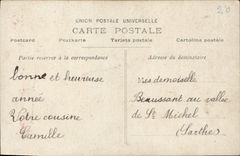 20
UNION POSTALE UNIVERSELLE
CARTE POSTALE
Postcard Postkarte Tarjeta postale Cartolina postale
Partie réservée à la correspondance
Adresse du destinataire
bonne et heureuse
année
Votre cousine
Camille
mes demoiselle
Beaussant au vallée
de St Michel
(Sarthe)